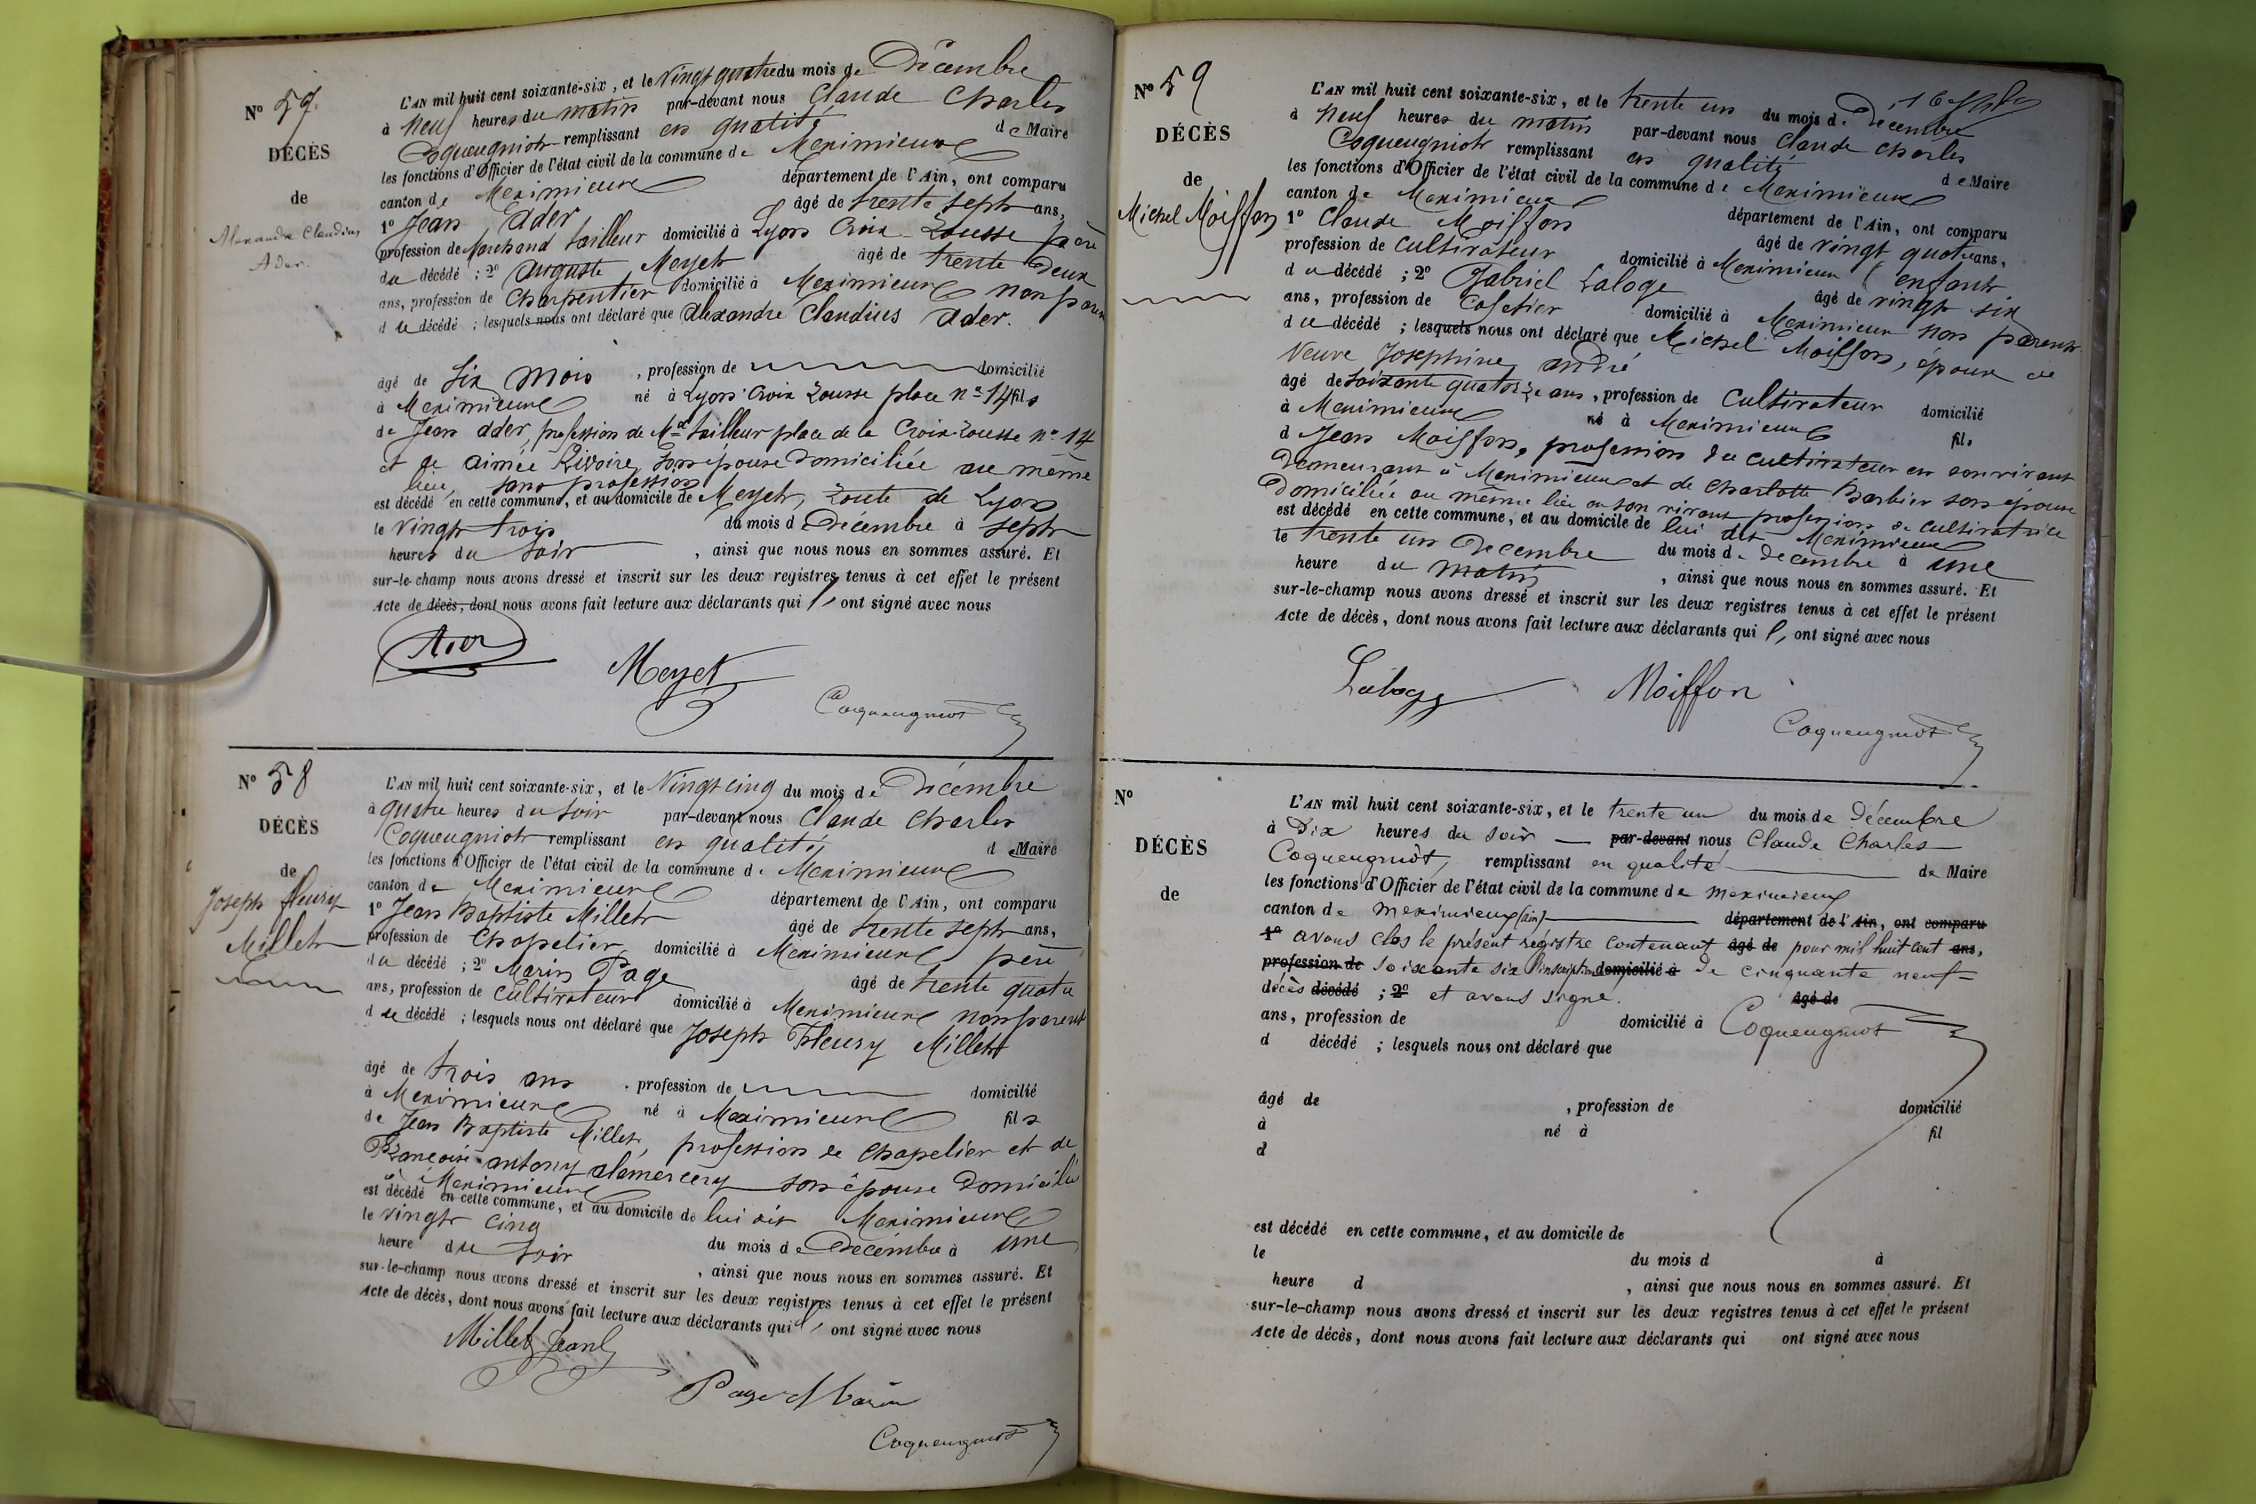 N° 57.
DÉCÈS
de
Alexandre Claudius
Ader.
L'AN mil huit cent soixante-six, et le Vingt quatre du mois de Décembre
à Neuf heures du matin par-devant nous Claude Charles
Coqueugniot remplissant en qualité de Maire
les fonctions d'Officier de l'état civil de la commune de Meximieux
canton de Meximieux département de l'Ain, ont comparu
1° Jean Ader âgé de trente sept ans,
profession de Marchand tailleur domicilié à Lyon Croix Rousse père
du décédé ; 2° Auguste Meyet âgé de trente Deux
ans, profession de Charpentier domicilié à Meximieux non parent
du décédé ; lesquels nous ont déclaré que Alexandre Claudius Ader.
âgé de Six mois , profession de domicilié
à Meximieux né à Lyon Croix Rousse place n° 14 fils
de Jean Ader, profession de Md tailleur place de la Croix-Rousse n° 14
et de Aimée Rivoire son épouse Domiciliée au même
lieu, sans profession
est décédé en cette commune, et au domicile de Meyet, route de Lyon
le Vingt trois du mois de Décembre à sept
heures du Soir , ainsi que nous nous en sommes assuré. Et
sur-le-champ nous avons dressé et inscrit sur les deux registres tenus à cet effet le présent
Acte de décès, dont nous avons fait lecture aux déclarants qui ont signé avec nous
Ader
Meyet
Coqueugniot
N° 58
DÉCÈS
de
Joseph fleury
Millet
L'AN mil huit cent soixante-six, et le Vingt cinq du mois de Décembre
à quatre heures du soir par-devant nous Claude Charles
Coqueugniot remplissant en qualité de Maire
les fonctions d'Officier de l'état civil de la commune de Meximieux
canton de Meximieux département de l'Ain, ont comparu
1° Jean Baptiste Millet âgé de trente sept ans,
profession de Chapelier domicilié à Meximieux père
du décédé ; 2° Marin Page âgé de trente quatre
ans, profession de Cultivateur domicilié à Meximieux non parent
du décédé ; lesquels nous ont déclaré que Joseph Fleury Millet
âgé de trois ans , profession de domicilié
à Meximieux né à Meximieux fils
de Jean Baptiste Millet, profession de Chapelier et de
Françoise antony son épouse Domiciliée
à Meximieux
est décédé en cette commune, et au domicile de lui dit Meximieux
le vingt cinq du mois de Décembre à une
heure du Soir , ainsi que nous nous en sommes assuré. Et
sur-le-champ nous avons dressé et inscrit sur les deux registres tenus à cet effet le présent
Acte de décès, dont nous avons fait lecture aux déclarants qui ont signé avec nous
Millet Jean
Page Marin
Coqueugniot
N° 59
DÉCÈS
de
Michel Moiffon
L'AN mil huit cent soixante-six, et le trente un du mois de Décembre
à Neuf heures du matin par-devant nous Claude Charles
Coqueugniot remplissant en qualité de Maire
les fonctions d'Officier de l'état civil de la commune de Meximieux
canton de Meximieux département de l'Ain, ont comparu
1° Claude Moiffon âgé de vingt quatre ans,
profession de Cultivateur domicilié à Meximieux enfant
du décédé ; 2° Gabriel Laloge âgé de vingt six
ans, profession de Cafetier domicilié à Meximieux non parent
du décédé ; lesquels nous ont déclaré que Michel Moiffon, époux de
Veuve Josephine André
âgé de soixante quatorze ans, profession de Cultivateur domicilié
à Meximieux né à Meximieux fils
d Jean Moiffon, profession de cultivateur en son vivant
Demeurant à Meximieux et de Charlotte Barbier son épouse
Domiciliée au même lieu en son vivant profession de cultivatrice
est décédé en cette commune, et au domicile de lui dit Meximieux
le trente un Décembre du mois de décembre à une
heure du matin , ainsi que nous nous en sommes assuré. Et
sur-le-champ nous avons dressé et inscrit sur les deux registres tenus à cet effet le présent
Acte de décès, dont nous avons fait lecture aux déclarants qui ont signé avec nous
Laloge
Moiffon
Coqueugniot
N°
DÉCÈS
de
L'AN mil huit cent soixante-six, et le trente un du mois de Décembre
à Dix heures du soir par-devant nous Claude Charles
Coqueugniot, remplissant en qualité de Maire
les fonctions d'Officier de l'état civil de la commune de Meximieux
canton de Meximieux (ain) département de l'Ain, ont comparu
1° avons clos le présent régistre contenant âgé de pour mil huit cent ans,
profession de soixante six l'inscription domicilié à De cinquante neuf
décès décédé ; 2° et avons signé. âgé de
ans, profession de domicilié à Coqueugniot
d décédé ; lesquels nous ont déclaré que
âgé de , profession de domicilié
à né à fil
d
est décédé en cette commune, et au domicile de
le du mois d à
heure d , ainsi que nous nous en sommes assuré. Et
sur-le-champ nous avons dressé et inscrit sur les deux registres tenus à cet effet le présent
Acte de décès, dont nous avons fait lecture aux déclarants qui ont signé avec nous